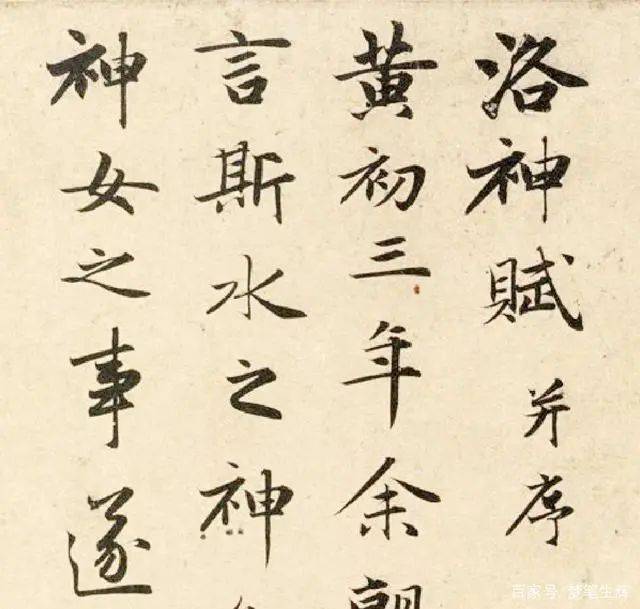 洛神賦
并序
黄初三年余朝
言斯水之神
神女之事遂
百家号/梦笔生辉